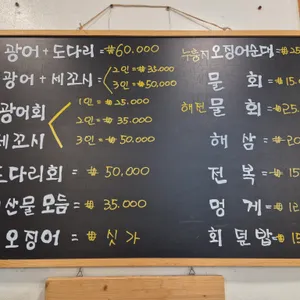 광어 + 도다리 = ₩60.000
광어 + 세꼬시 2인 = ₩35.000
3인 = ₩50,000
광어회
세꼬시
1인 = ₩25.000
2인 = ₩35.000
3인 = ₩50.000
도다리회 = ₩50,000
산물 모듬 = ₩35.000
오징어 = ₩싯가
누룽지 오징어순대 = ₩25
물회 = ₩15.
해전물회 = ₩25.
해삼 = ₩20
전복 = ₩15
멍게 = ₩12
회덮밥 = ₩15